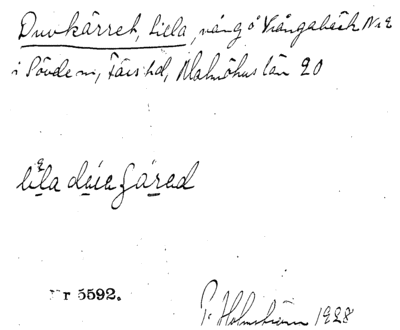 Duvkärret, Lilla, vång å Vrångabäck No 2
i Sövde sn, Färs hd, Malmöhus län 20
lila dúva ҫárad
Nr 5592.
P. Holmström 1928